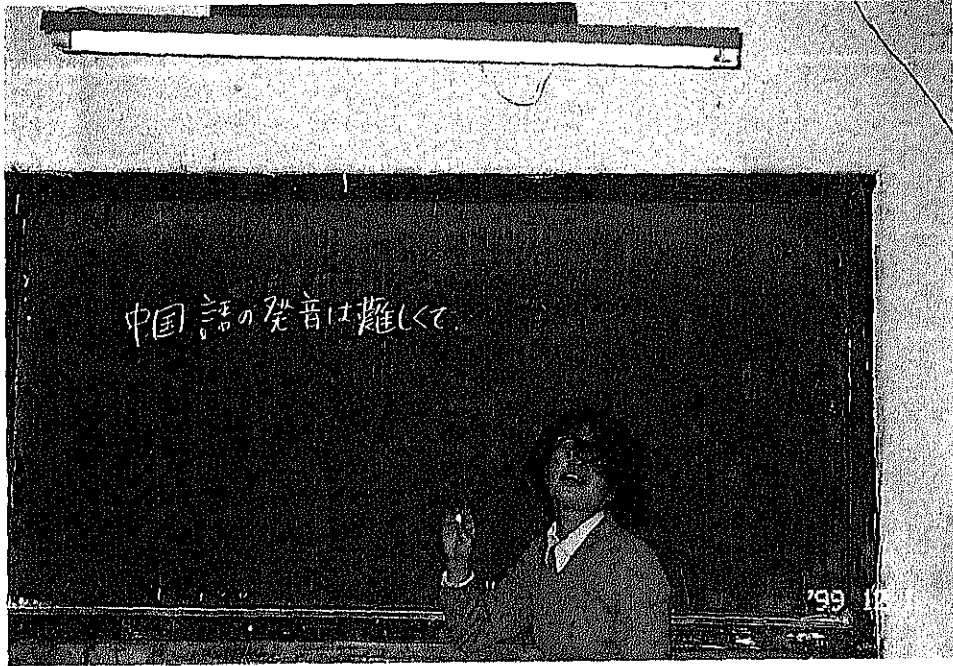 中国語の発音は難しくて
'99